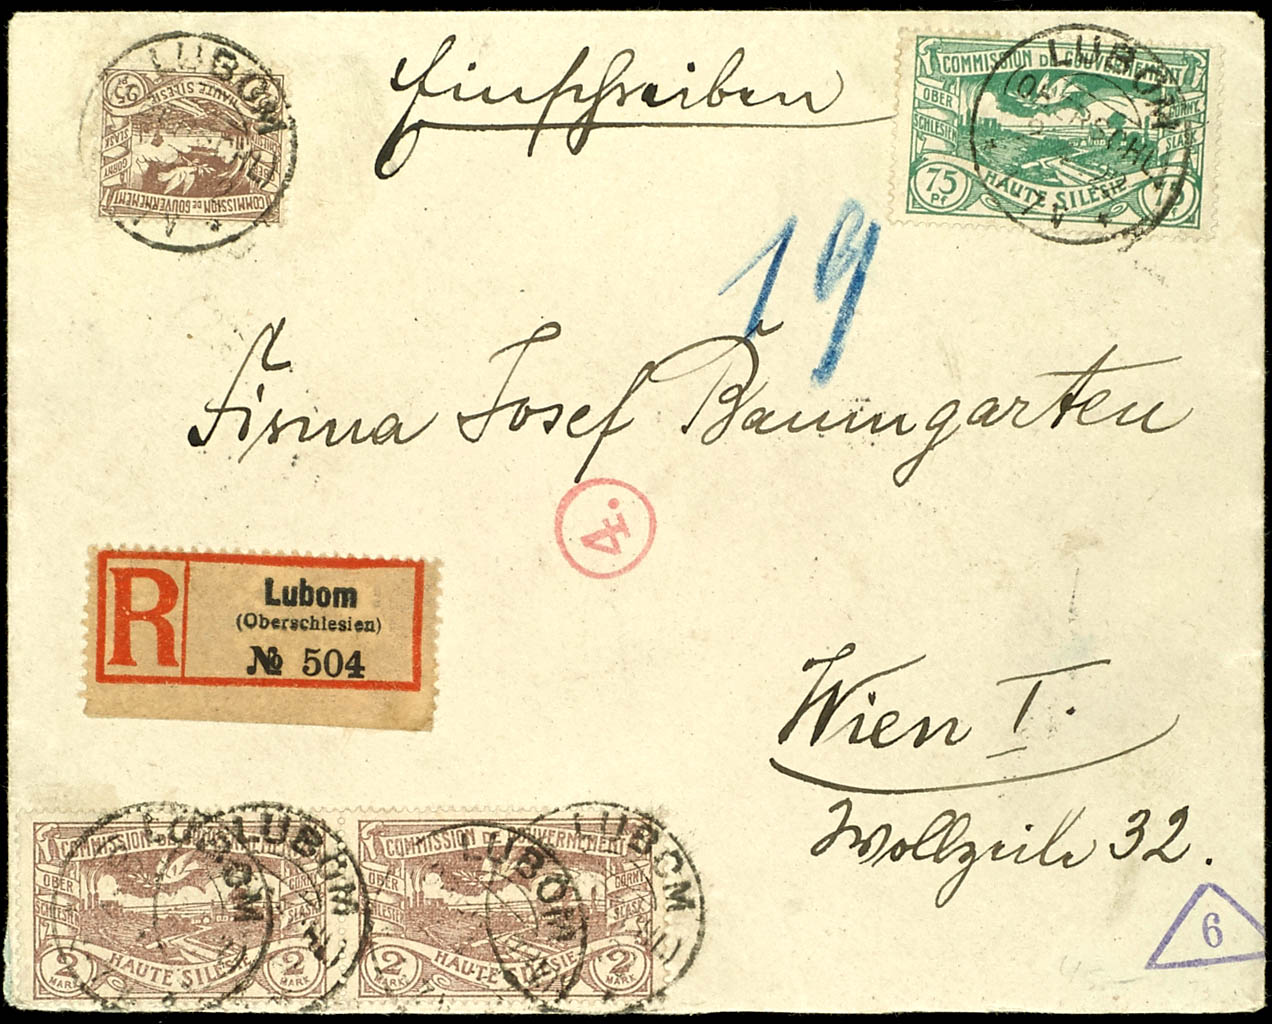 LUBOM
25 Pf
HAUTE SILESIE
COMMISSION DE GOUVERNEMENT
GÓRNY ŚLĄSK
Einschreiben
COMMISSION DE GOUVERNEMENT
OBER SCHLESIEN
GÓRNY ŚLĄSK
75 Pf
HAUTE SILESIE
75
LUBOM
(OBERSCHL)
19
Firma Josef Baumgarten
4.
R
Lubom
(Oberschlesien)
№ 504
Wien I.
Wollzeile 32.
6
COMMISSION DE GOUVERNEMENT
OBER SCHLESIEN
GÓRNY ŚLĄSK
2 MARK
HAUTE SILESIE
2 MARK
LUBOM
LUBOM
COMMISSION DE GOUVERNEMENT
OBER SCHLESIEN
GÓRNY ŚLĄSK
2 MARK
HAUTE SILESIE
2 MARK
LUBOM
LUBOM